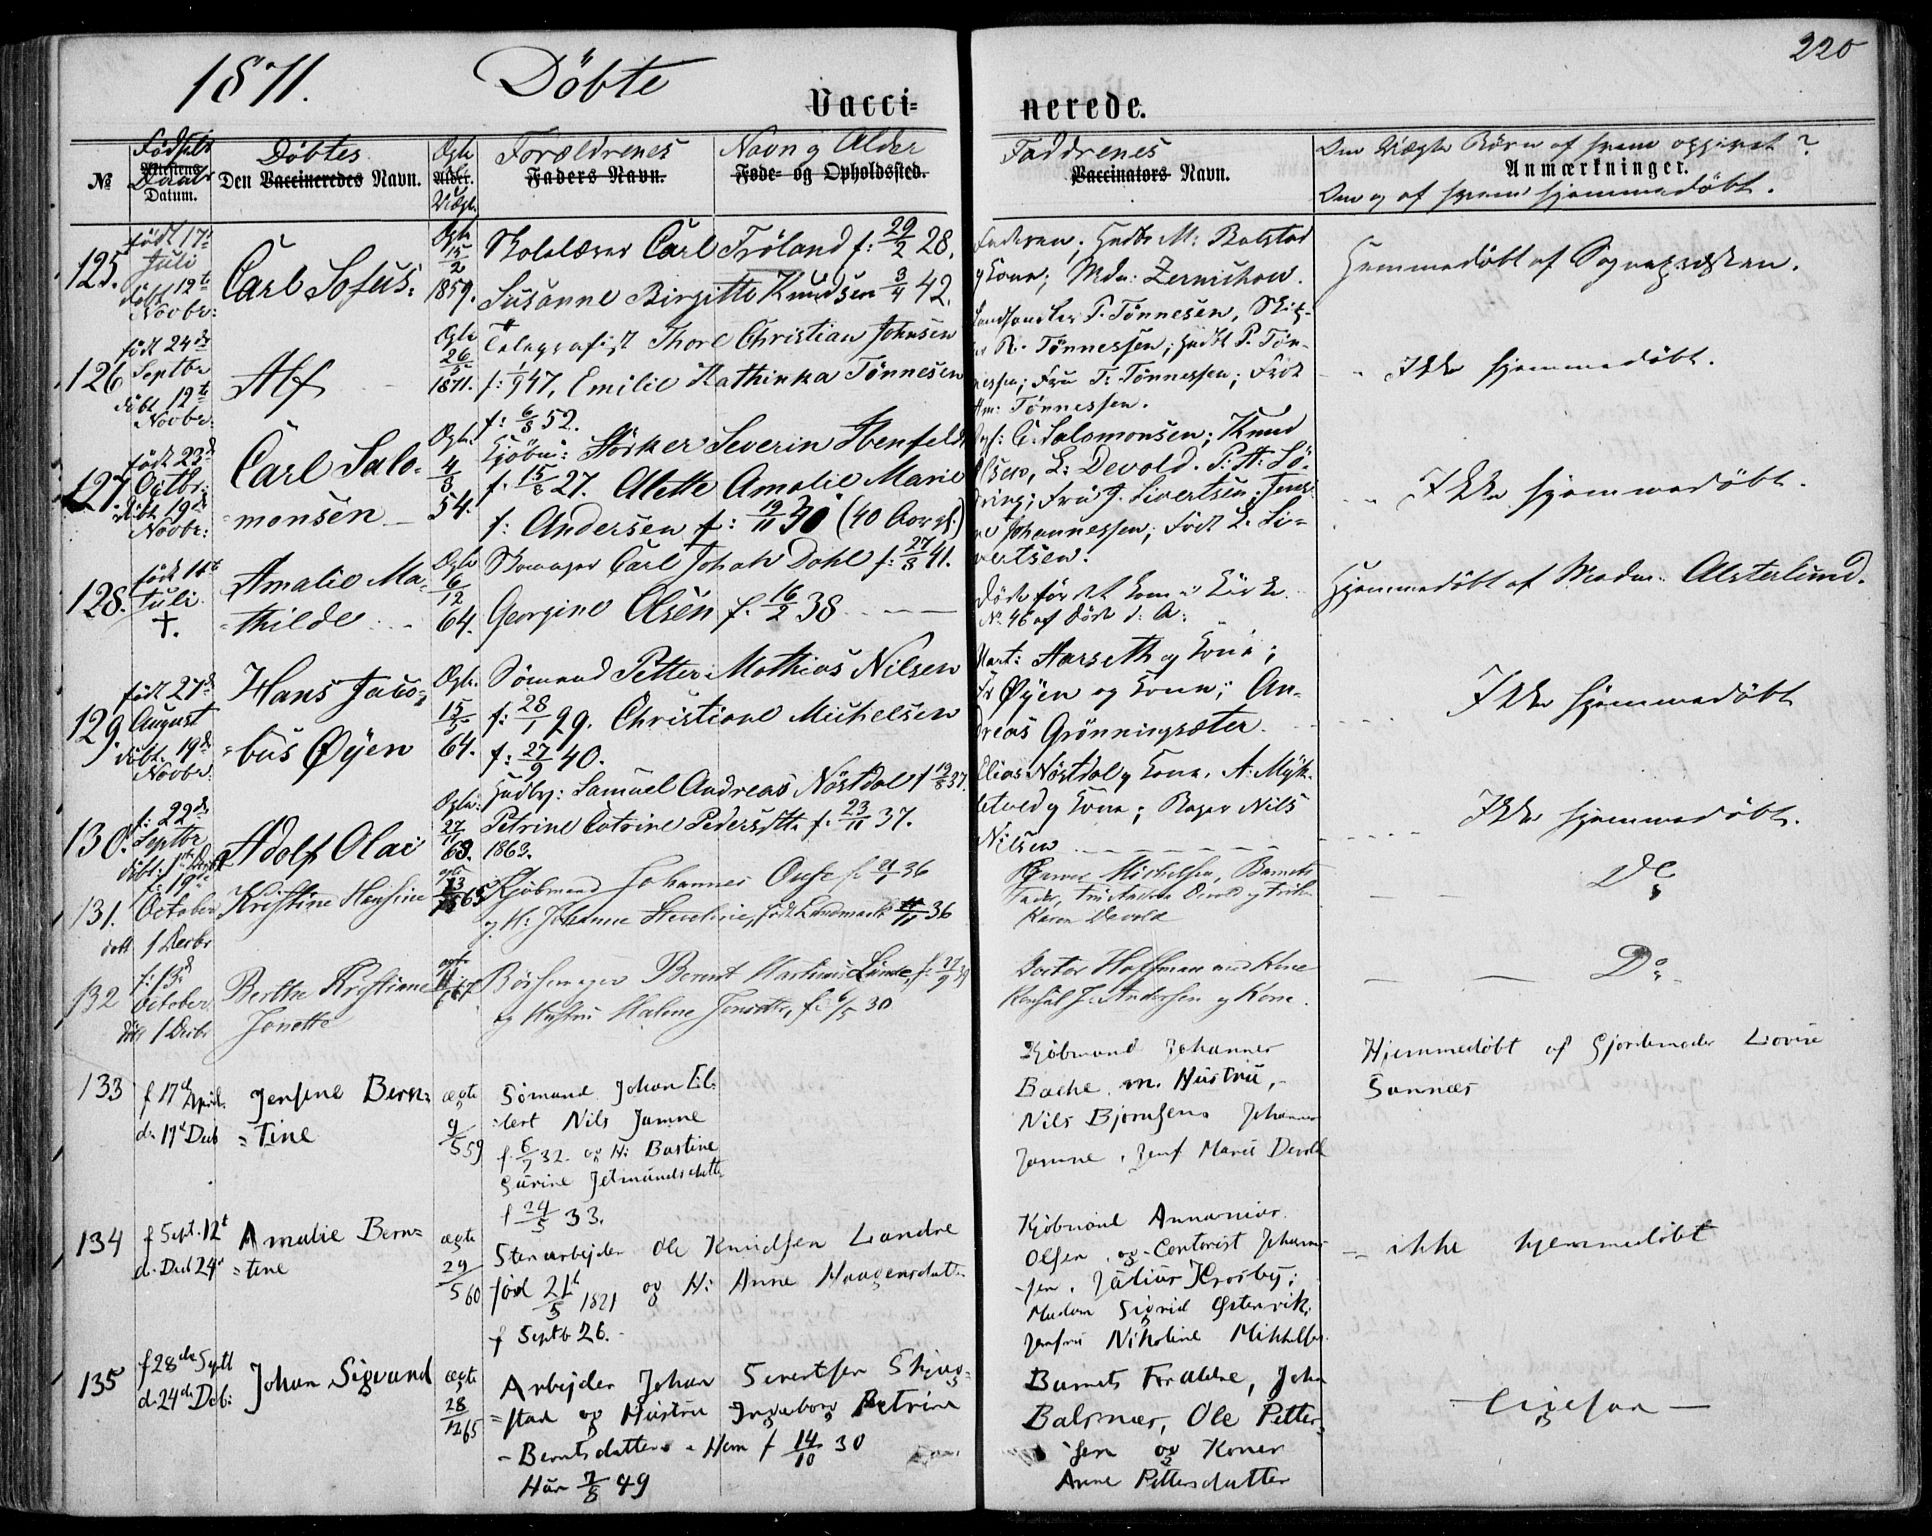 220
1871. Döbte
Vacci= nerede.
№
Födsels Attestens Daabs Datum.
Döbtes Den Vaccineredes Navn.
Ægte Alder. Uægt.
Forældrenes Faders Navn.
Navn og Alder Føde- og Opholdssted.
Faddrenes Vaccinators Navn.
Om Uægte Börn af hvem opgivet?
Anmærkninger.
Om og af hvem hjemmedöbt.
125. födt 17de Juli döbt 19de Novbr: Carl Sofus. Ægte 15/2 1859.
Skolelærer Carl Tröland f: 29/2 28.
Susanne Birgitte Knudsen 3/4 42.
Faderen;
Madm: Zernichow.
Hjemmedöbt af Sognepresten.
126 födt 24de Septbr döbt 19de Novbr. Alf Ægte 26/5 1871.
Telegrafist Thorl Christian Johnsen
f: 1/9 47, Emilie Kathinka Tönnesen
f: 6/8 52.
Landhandler P. Tönnesen,
R. Tönnessen; P. Tön-
nessen; Fru T. Tönnessen; Frök
Am: Tönnessen.
Ikke hjemmedöbt.
127. födt 23de Octbr: döbt 19de Novbr: Carl Salo-
monsen Ægte 4/8 54.
Kjöbm: Störker Severin Ibenfeldt
f. 15/8 27. Alette Amalie Marie
f: Andersen f: 19/11 30 (40 Aar gl.)
C. Salomonsen; Knud
Olsen, L: Devold. P. A: Sö-
ring; Fru J. Sivertsen;
Johannessen; Frök L. Si-
vertsen.
Ikke hjemmedöbt.
128. födt Juli †. Amalie Ma-
thilde Ægte 6/12 64.
Skomager Carl Johan Dahl f: 27/8 41.
Georgine Olsen f. 16/2 38
Död för det kom i Kirke.
No 46 af döde d: A:
Hjemmedöbt af Madm: Alsterlund.
129. födt 27de August döbt. 19de Novbr. Hans Jaco-
bus Øyen Ægte. 15/5 64.
Sömand Petter Mathias Nilsen
f: 28/1 29. Christiane Michelsen
f: 27/9 40.
Mart: Aarseth og Kone;
Øyen og Kone; An-
dreas Grönningsæter.
Ikke hjemmedöbt
130. f: 22de Septbr döbt: 1ste Decbr Adolf Olai Ægte: 27/11 63.
Husby: Samuel Andreas Nöstdal f 19/8 37.
Petrine Catrine Pedersdtt. f: 23/11 37.
1863.
Elias Nöstdal og Kone, A: Myk-
letved og Kone; Bager Nils
Nilsen
Ikke hjemmedöbt.
131. f: 19de October döbt 1 Decbr Kristine Hansine
Kjöbmand Johannes Ouse f. 21/7 36
og H: Johanne Severine, födt Landmark 11/11 36
Michelsen, Barnets
Fader,
Karen Devold
Do
132 f: 13de October döbt 1 Decbr Berthe Kristiane
Jonette
Börsemager Bernt Martinus Linde, f: 27/9
og Hustru Malene Jonsdtr, f: 6/5 30
Doctor Hoffman med Kone
Konsul J. Andersen og Kone.
Do
133 f 17de April. d: 17de Decb Jensine Bern-
=tine ægte 9/5 59
Sömand Johan Eil-
-lert Nils Jamne
f. 6/7 32. og H: Bastine
Gurine Jetmundsdatter
f 24/5 33.
Kjöbmand Johannes
Bache m. Hustru,
Nils Björnsens Johannes
Jamne, Jomf Marie Devold
Hjemmedöbt af Gjordemoder Lovise
Sannæs
134 f Sept. 12t d. Decb 24de Amalie Bern=
=tine ægte 29/5 60
Stenarbejder Ole Knudsen Landre
fød 21de/5 1821 og H: Anne Haagensdatter
f Septb 26.
Kjöbmand Annanias
Olsen, og Contorist Johannes-
-sen, Julius Krosby;
Madam Sigrid Østenvik;
Jomfru Nikoline Mikkelsen
ikke hjemmedöbt
135 f 28de Septb d. 24de Decb: Johan Sigvand ægte 28/12 65
Arbejder Johan Sevretsen Skjug=
=stad og Hustru Ingeborg Petrine
- Berntsdatter. - Ham f 14/10 30
Hun 7/8 49
Barnets Forældre, John
Balsnæs, Ole Petter-
sen og Koner
Anne Pettersdatter
- Ligesaa -